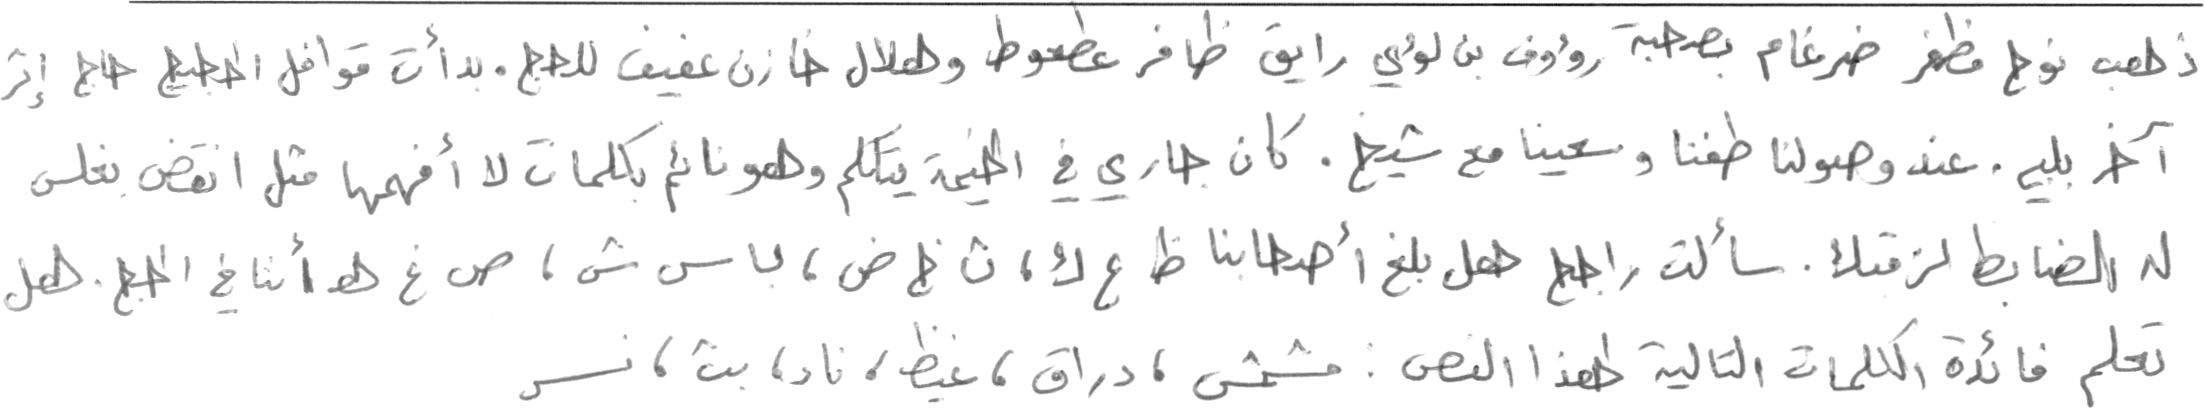 ذهب نوح مظفر ضرغام بصحبة رؤوف بن لؤي رايق ظافر عطعوط وهلال خازن عفيف للحج. بدأت قوافل الحجيج حاج إثر
آخر يلبي. عند وصولنا طفنا وسعينا مع شيخ. كان جاري في الخيمة يتكلم وهو نائم بكلمات لا أفهمها مثل انقض بغلس
له الضابط لزقتك. سألت راجح هل بلغ أصحابنا ظ ع ك، ث خ ض، لباس ش، ص غ هـ أننا في الحج. هل
تعلم فائدة الكلمات التالية لهذا النص: مشمش، دراق، غيظ، ناد، بث، نس